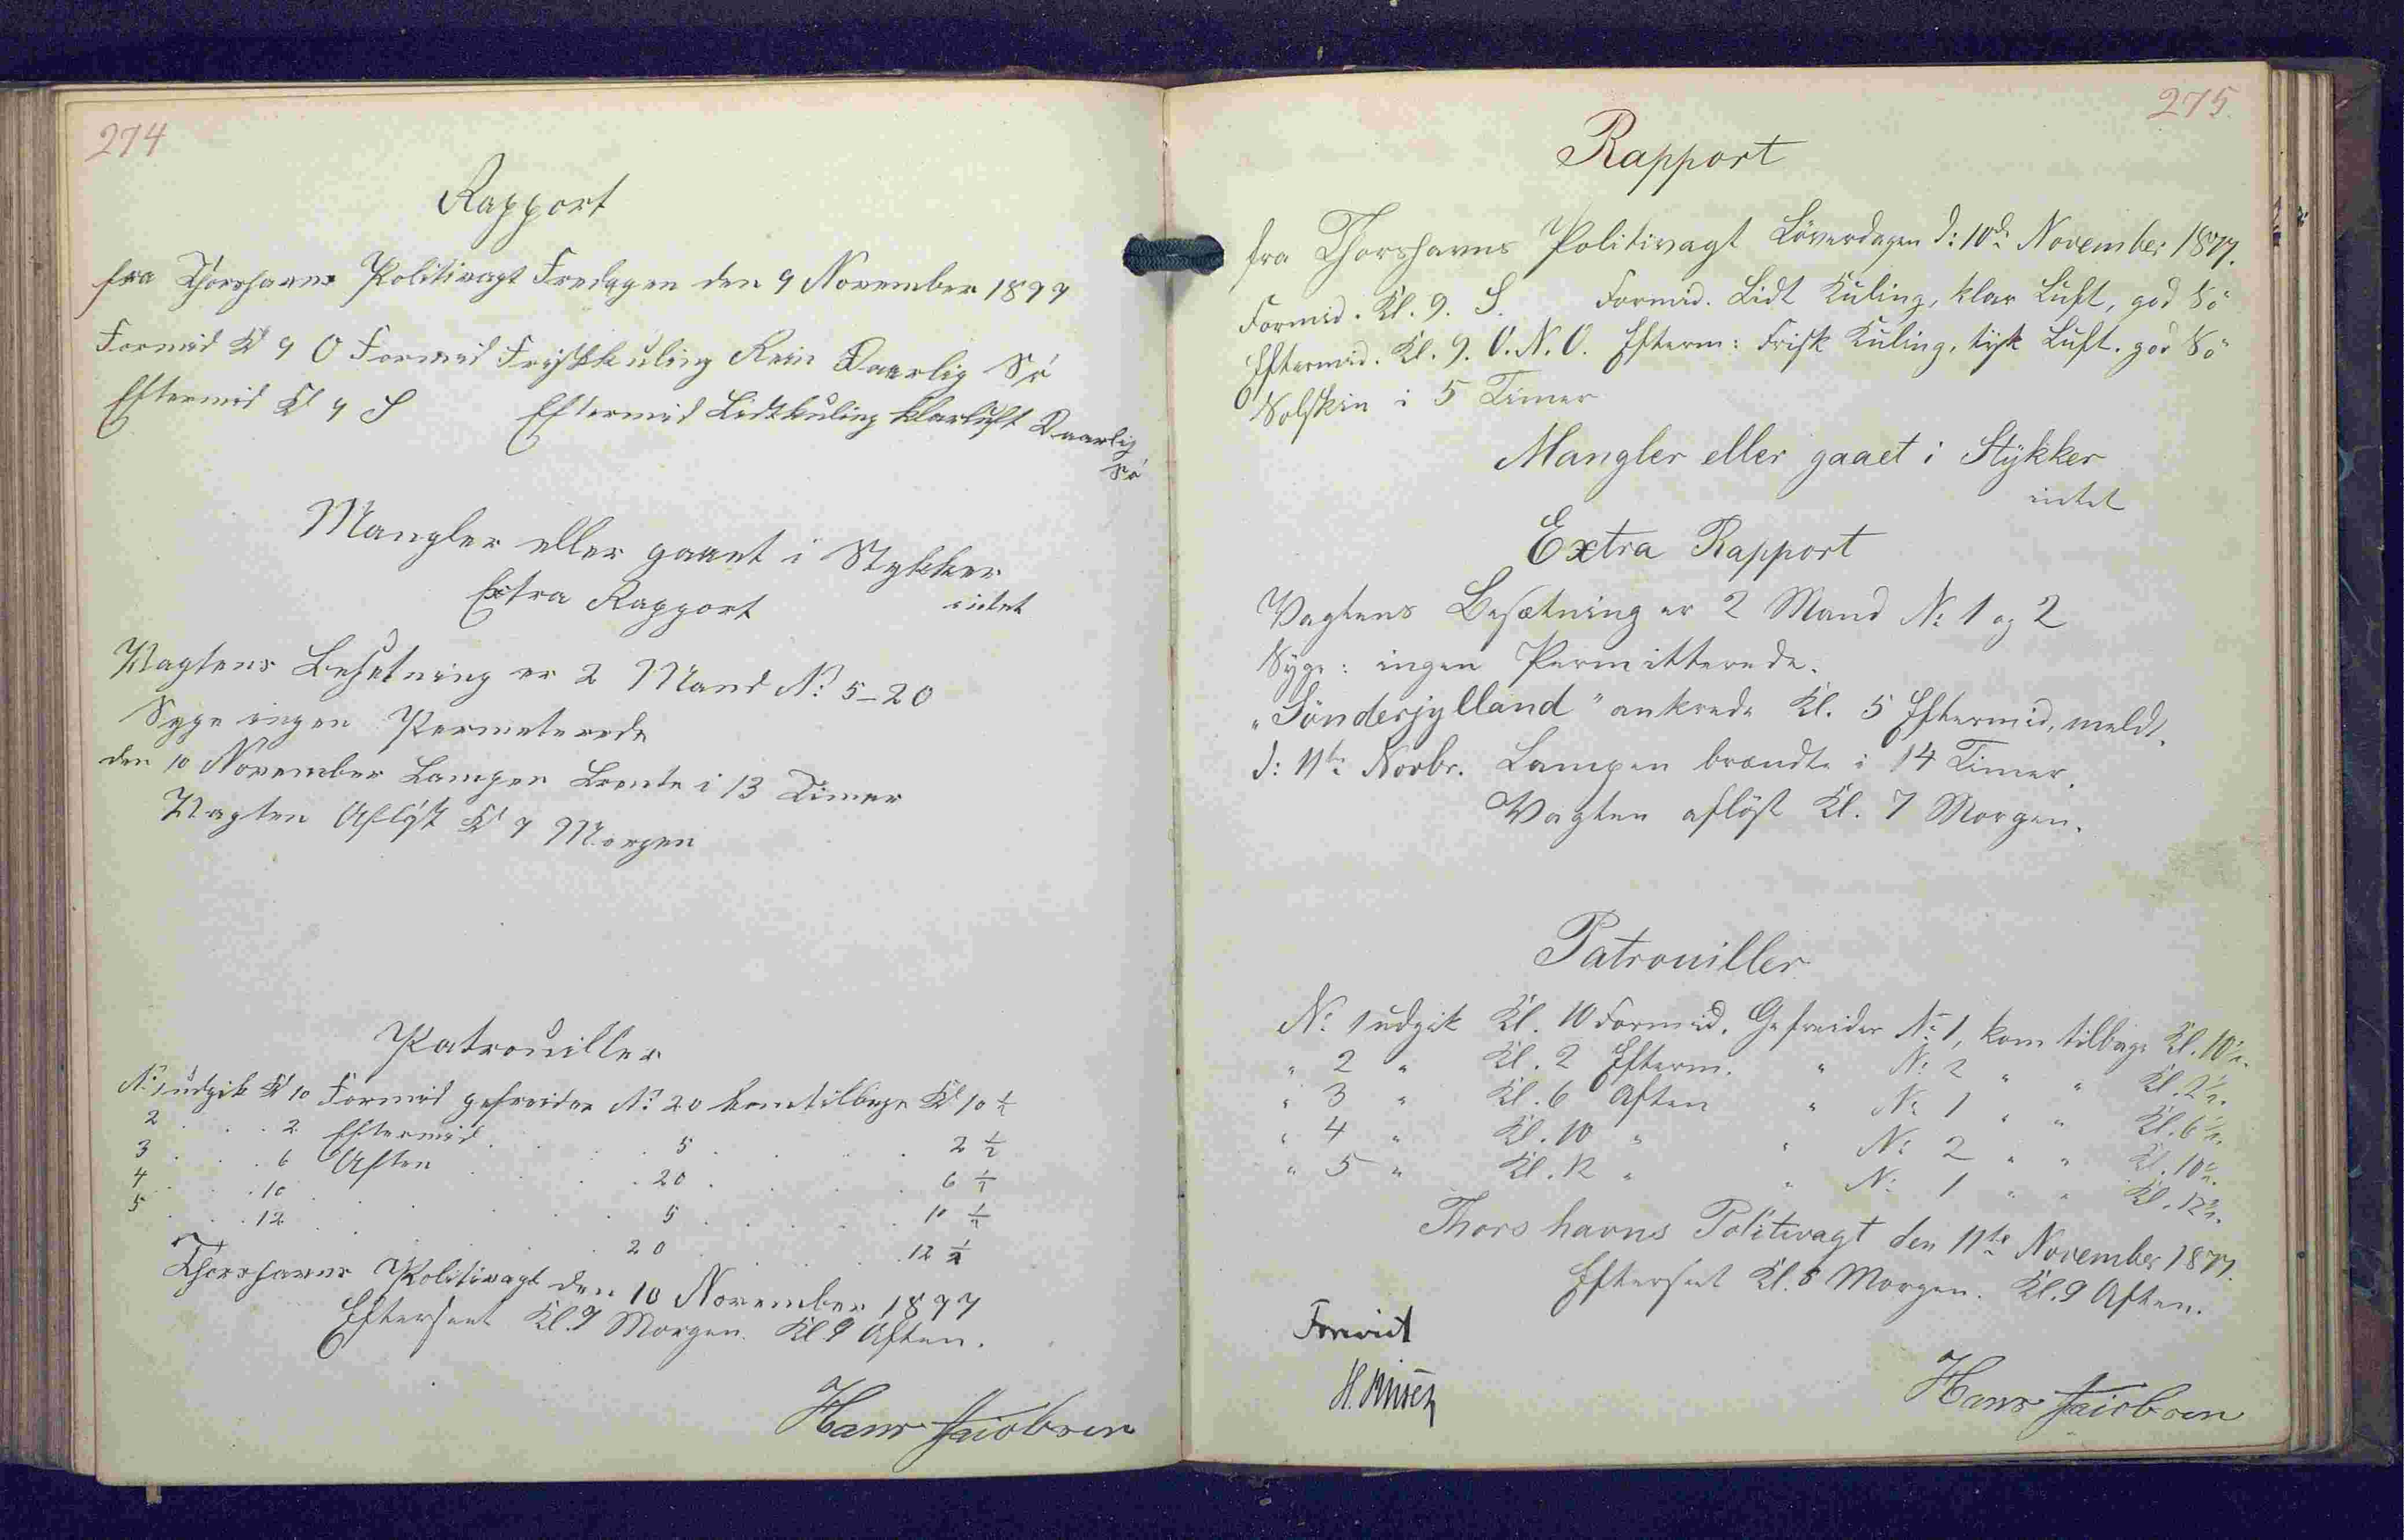 274
Rapport
fra Thorshavns Politivagt Fredagen den 9 November 1877
Formid Kl 9 O Formid Friskkuling Rein Daarlig Sö
Eftermid Kl 9 S Eftermid Lidtkuling klarluft Daarlig
Sö
Mangler eller gaaet i Stykker
intet
Extra Rapport
Vagtens Besetning er 2 Mand No 5-20
Syge ingen Permeterede
den 10 November Lampen Brente i 13 Timer
Vagten Aflöst Kl 7 Morgen
Patrouiller
No 1 udgik Kl 10 Formid gefreider No 20 kom tilbage Kl 10 1/2
2 . . . 2 Eftermid . . . 5 . . . 2 1/2
3 . . . 6 Aften . . . 20 . . . 6 1/2
4 . . . 10 . . . 5 . . . 10 1/2
5 . . . 12 . . . 20 . . . 12 1/2
Thorshavns Politivagt den 10 November 1877
Efterseet Kl. 9 Morgen. Kl 9 Aften.
Hans Jacobsen
275.
Rapport
fra Thorshavns Politivagt Löverdagen d: 10de November 1877.
Formid. Kl. 9. S. Formid. Lidt Kuling, klar Luft, god Sö
Eftermid. Kl. 9. O.N.O. Efterm: Frisk Kuling, tyk Luft. god Sö
Solskin i 5 Timer
Mangler eller gaaet i Stykker
intet
Extra Rapport
Vagtens Besætning er 2 Mand No 1 og 2
Syge: ingen Permitterede.
"Sönderjylland" ankrede Kl. 5 Eftermid, meldt.
d: 11te Novbr. Lampen brændte i 14 Timer.
Vagten aflöst Kl. 7 Morgen.
Patrouiller
No 1 udgik Kl. 10 Formid. Gefreider No 1, kom tilbage Kl. 10 1/2.
" 2 " Kl. 2 Efterm. " No 2 " " Kl. 2 1/2.
" 3 " Kl. 6 Aften " No 1 " " Kl. 6 1/2.
" 4 " Kl. 10 " " No 2 " " Kl. 10 1/2.
" 5 " Kl. 12 " " No 1 " " Kl. 12 1/2.
Thorshavns Politivagt den 11te November 1877.
Efterseet Kl. 8 Morgen. Kl. 9 Aften.
Forevist
Hans Jacobsen